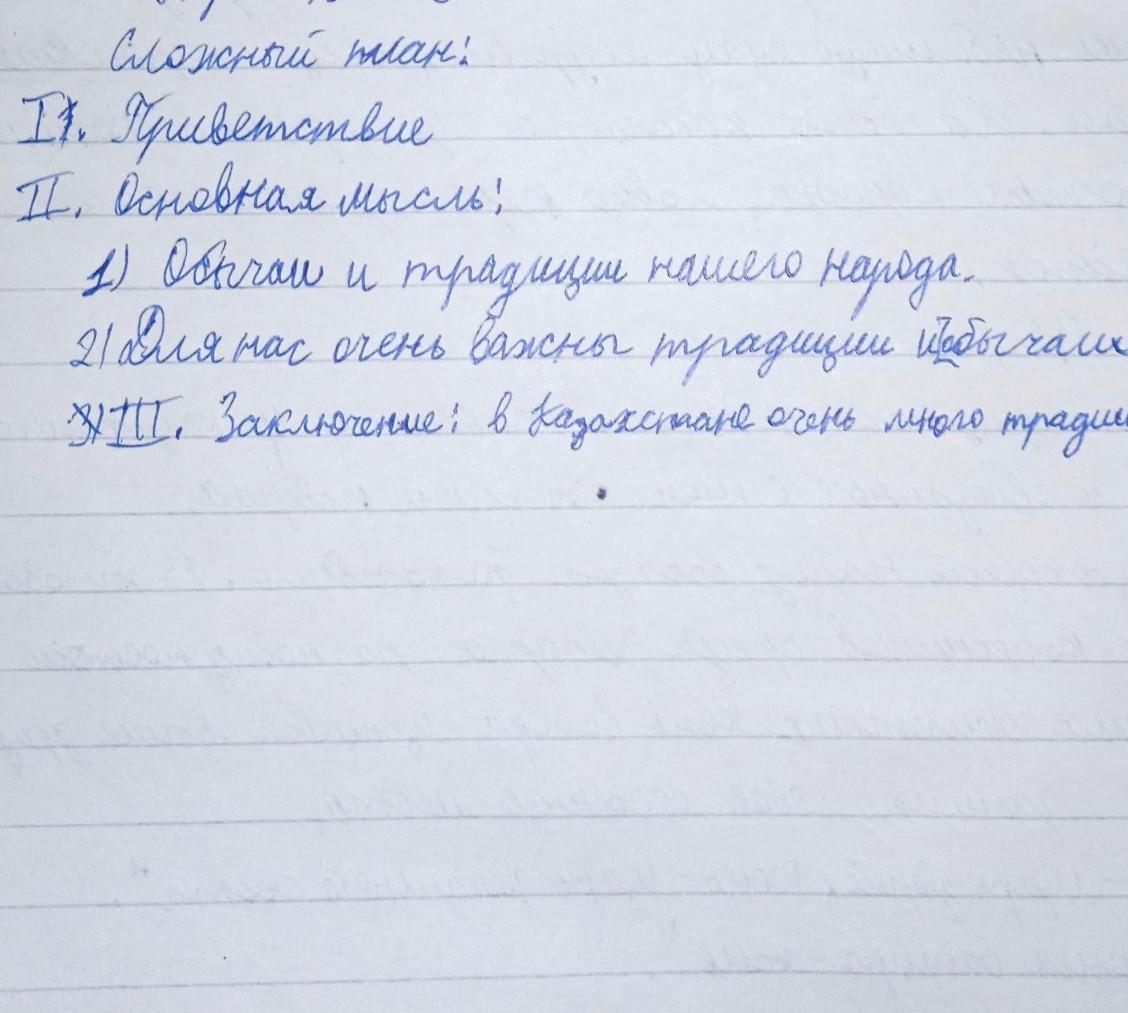 Сложный план:
I. Приветствие
II. Основная мысль:
1) Обычаи и традиции нашего народа.
2) Для нас очень важны традиции и обычаи
III. Заключение: в Казахстане очень много